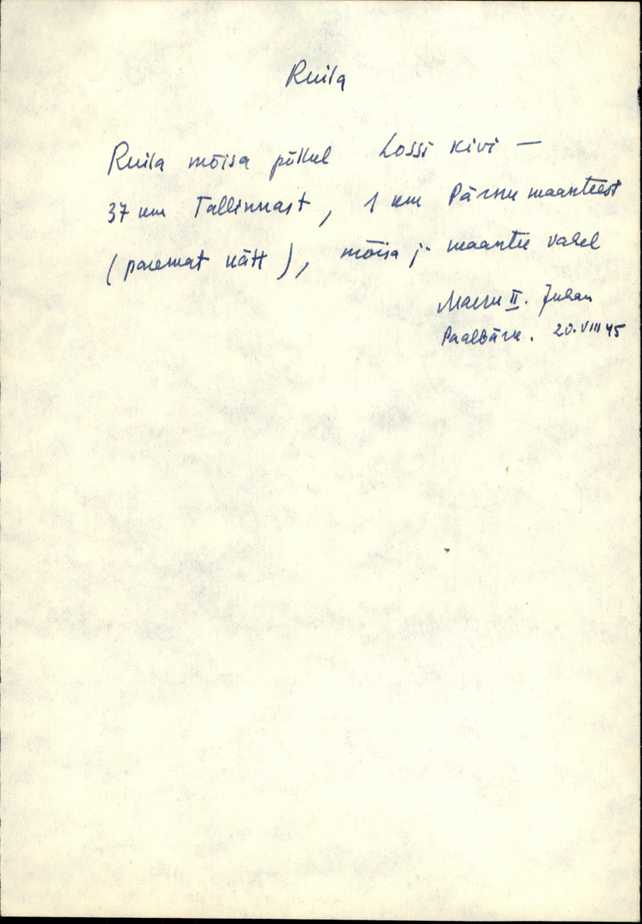 Ruila
Ruila mõisa põllul Lossi kivi —
37 km Tallinnast, 1 km Pärnu maanteest
(paremat kätt), mõisa ja maantee vahel
II. Juhan
20.VIII 45